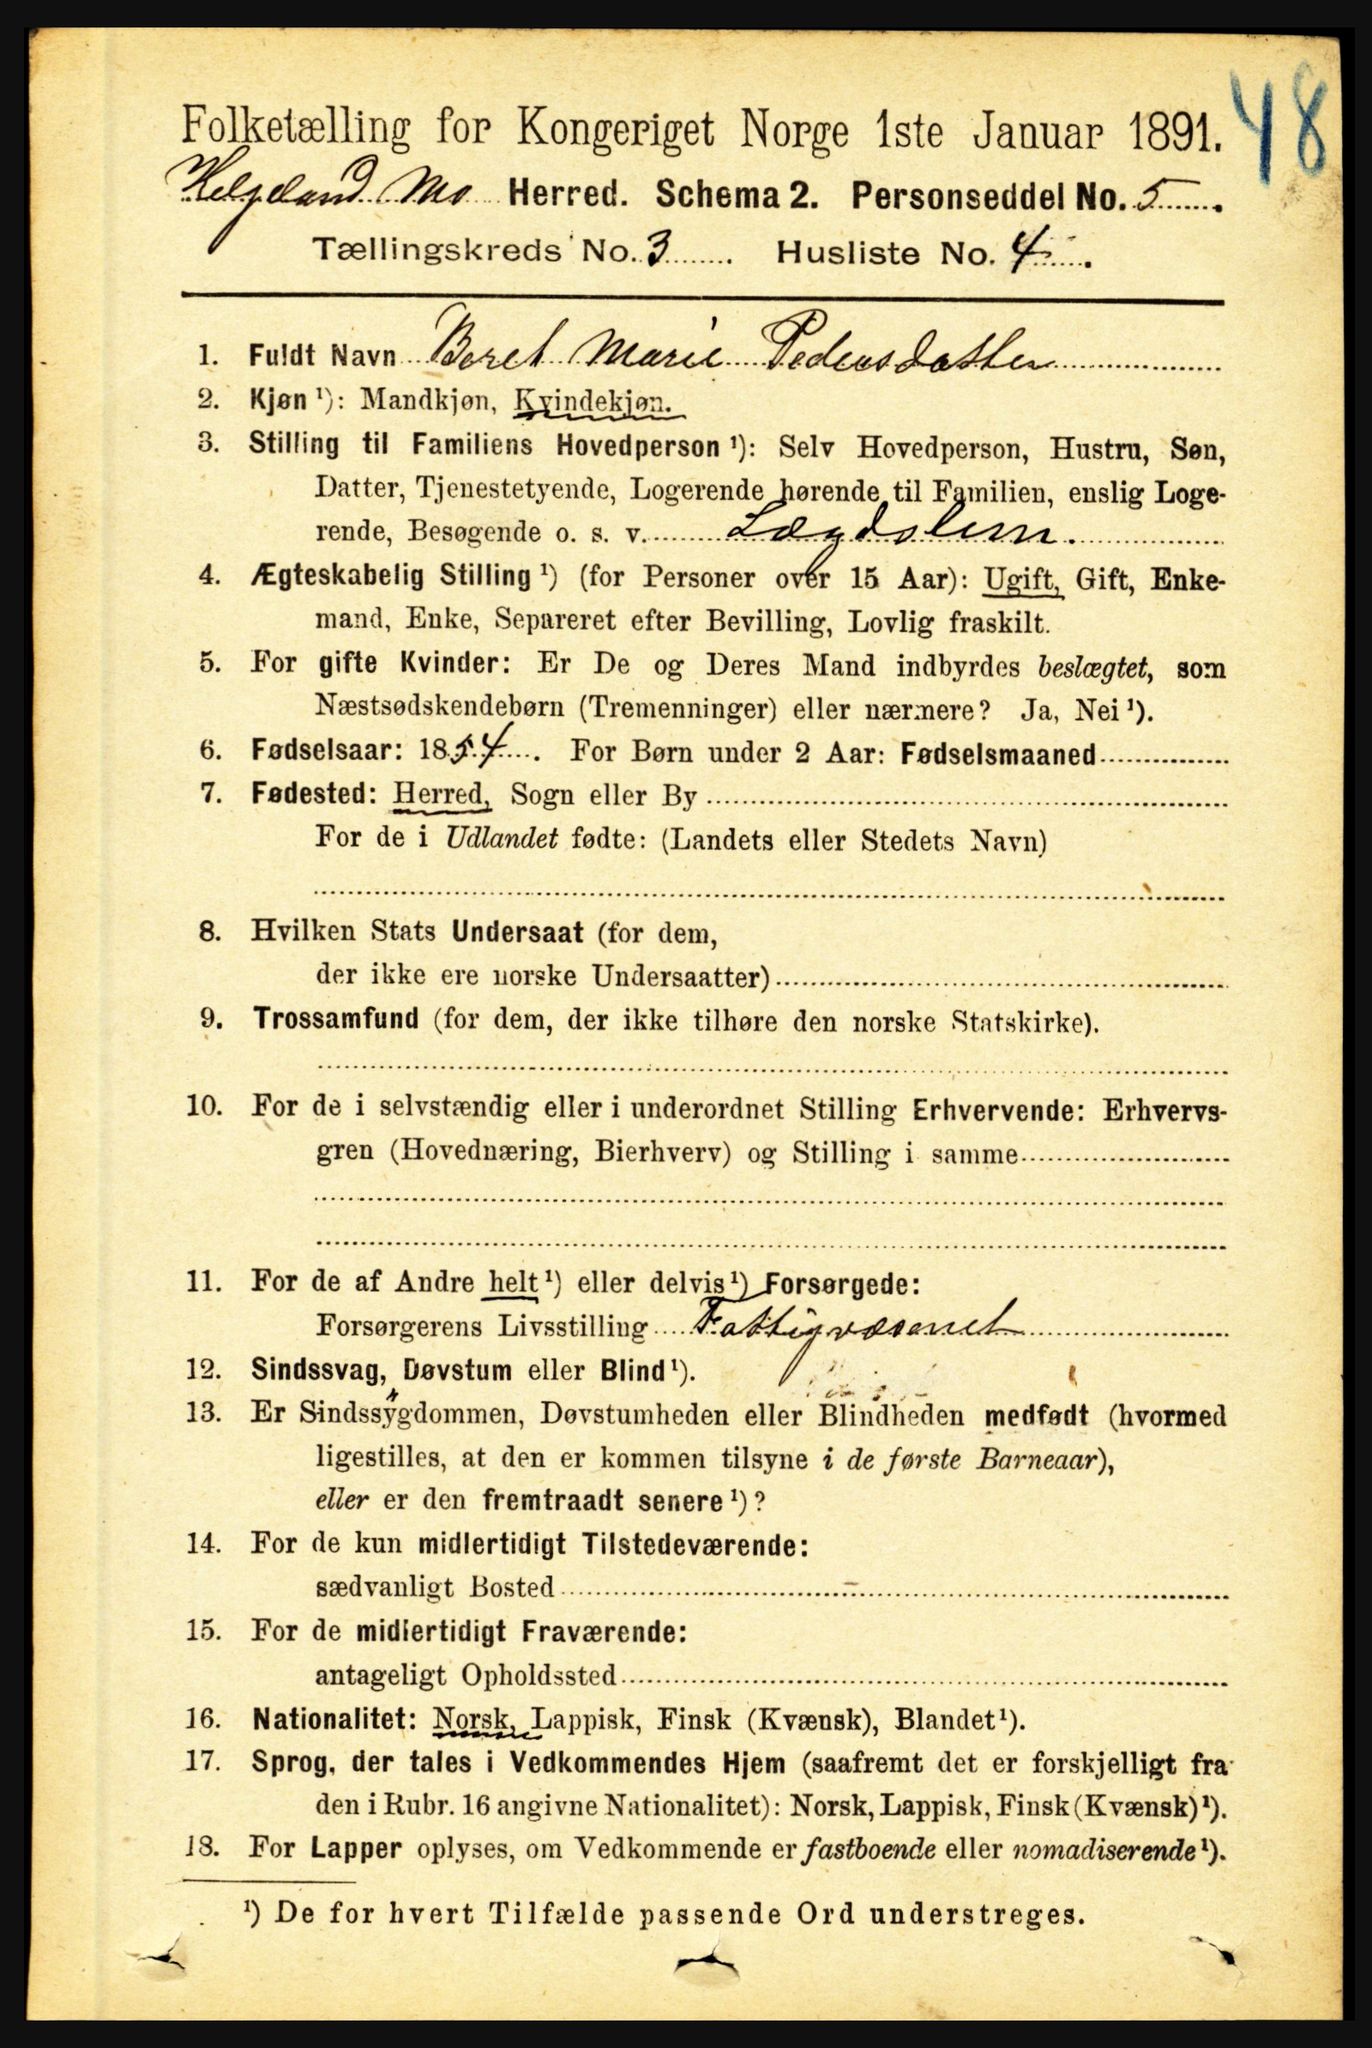 48
Folketælling for Kongeriget Norge 1ste Januar 1891.
Helgeland Mo Herred. Schema 2. Personseddel No. 5.
Tællingskreds No. 3. Husliste No. 4.
1. Fuldt Navn Beret Marie Pedersdatter
2. Kjøn ¹): Mandkjøn, Kvindekjøn.
3. Stilling til Familiens Hovedperson ¹): Selv Hovedperson, Hustru, Søn,
Datter, Tjenestetyende, Logerende hørende til Familien, enslig Loge-
rende, Besøgende o. s. v. Lægdslem.
4. Ægteskabelig Stilling ¹) (for Personer over 15 Aar): Ugift, Gift, Enke-
mand, Enke, Separeret efter Bevilling, Lovlig fraskilt.
5. For gifte Kvinder: Er De og Deres Mand indbyrdes beslægtet, som
Næstsødskendebørn (Tremenninger) eller nærmere? Ja, Nei ¹).
6. Fødselsaar: 1854. For Børn under 2 Aar: Fødselsmaaned
7. Fødested: Herred, Sogn eller By
For de i Udlandet fødte: (Landets eller Stedets Navn)
8. Hvilken Stats Undersaat (for dem,
der ikke ere norske Undersaatter)
9. Trossamfund (for dem, der ikke tilhøre den norske Statskirke).
10. For de i selvstændig eller i underordnet Stilling Erhvervende: Erhvervs-
gren (Hovednæring, Bierhverv) og Stilling i samme
11. For de af Andre helt ¹) eller delvis ¹) Forsørgede:
Forsørgerens Livsstilling Fattigvæsenet
12. Sindssvag, Døvstum eller Blind ¹).
13. Er Sindssygdommen, Døvstumheden eller Blindheden medfødt (hvormed
ligestilles, at den er kommen tilsyne i de første Barneaar),
eller er den fremtraadt senere ¹)?
14. For de kun midlertidigt Tilstedeværende:
sædvanligt Bosted
15. For de midlertidigt Fraværende:
antageligt Opholdssted
16. Nationalitet: Norsk, Lappisk, Finsk (Kvænsk), Blandet ¹).
17. Sprog, der tales i Vedkommendes Hjem (saafremt det er forskjelligt fra
den i Rubr. 16 angivne Nationalitet): Norsk, Lappisk, Finsk (Kvænsk) ¹).
18. For Lapper oplyses, om Vedkommende er fastboende eller nomadiserende ¹).
¹) De for hvert Tilfælde passende Ord understreges.